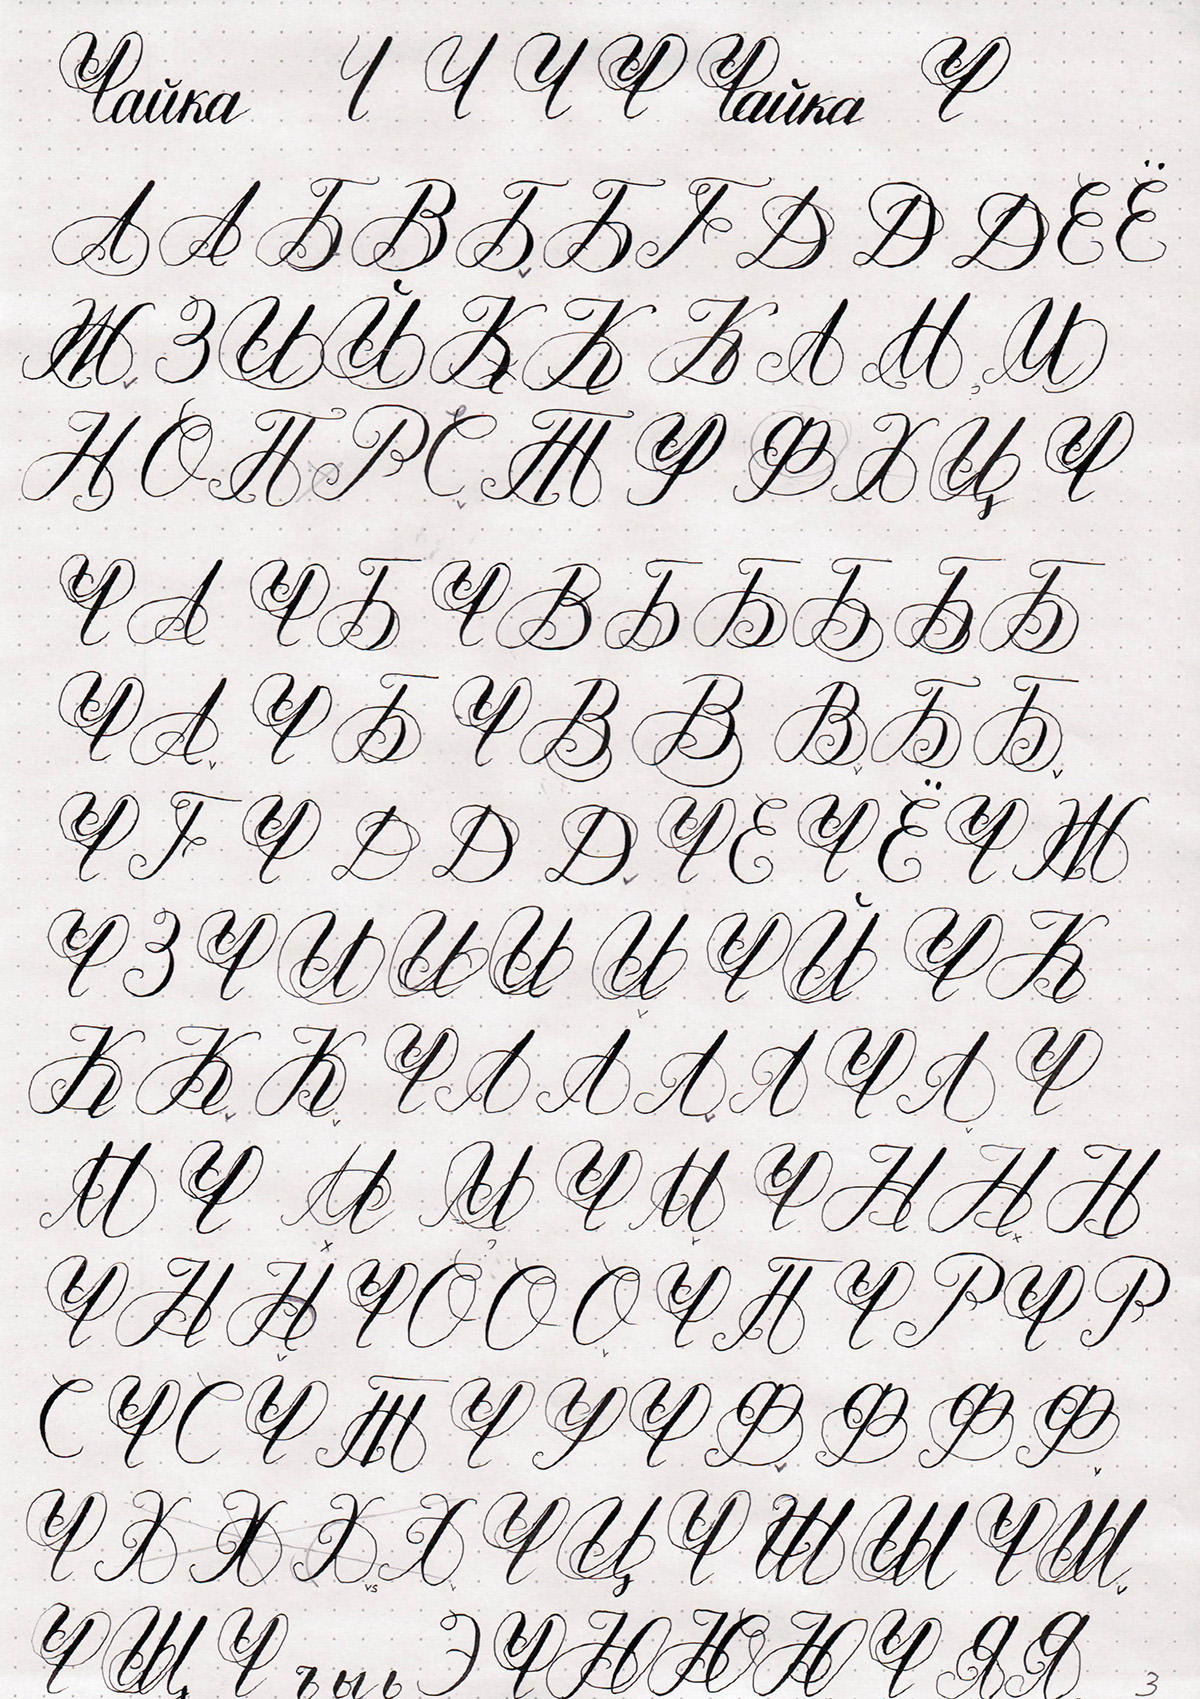 Чайка Ч Ч Ч Ч Чайка Ч
А А Б В Б Б Г Д Д Д Е Ё
Ж З И Й К К К Л М И
Н О П Р С Т У Ф Х Ц Ч
Ч А Ч Б Ч В Б Б Б Б Б
Ч А Ч Б Ч В В В Б Б
Ч Г Ч Д Д Д Ч Е Ч Ё Ч Ж
Ч З Ч И И И И Ч Й Ч К
К К К Ч Л Л Л Л Ч Л Ч
М Ч М И Ч М Ч Н Н Н
Ч Н Н Ч О О О Ч П Ч Р Ч Р
С Ч С Ч Т Ч У Ч Ф Ф Ф Ф
Ч Х Х Х Х Ч Ц Ч Ш Ш Ч Ш
Ч Щ Ч ъ ы ь Э Ч Ю Ю Ю Ч Я Я 3